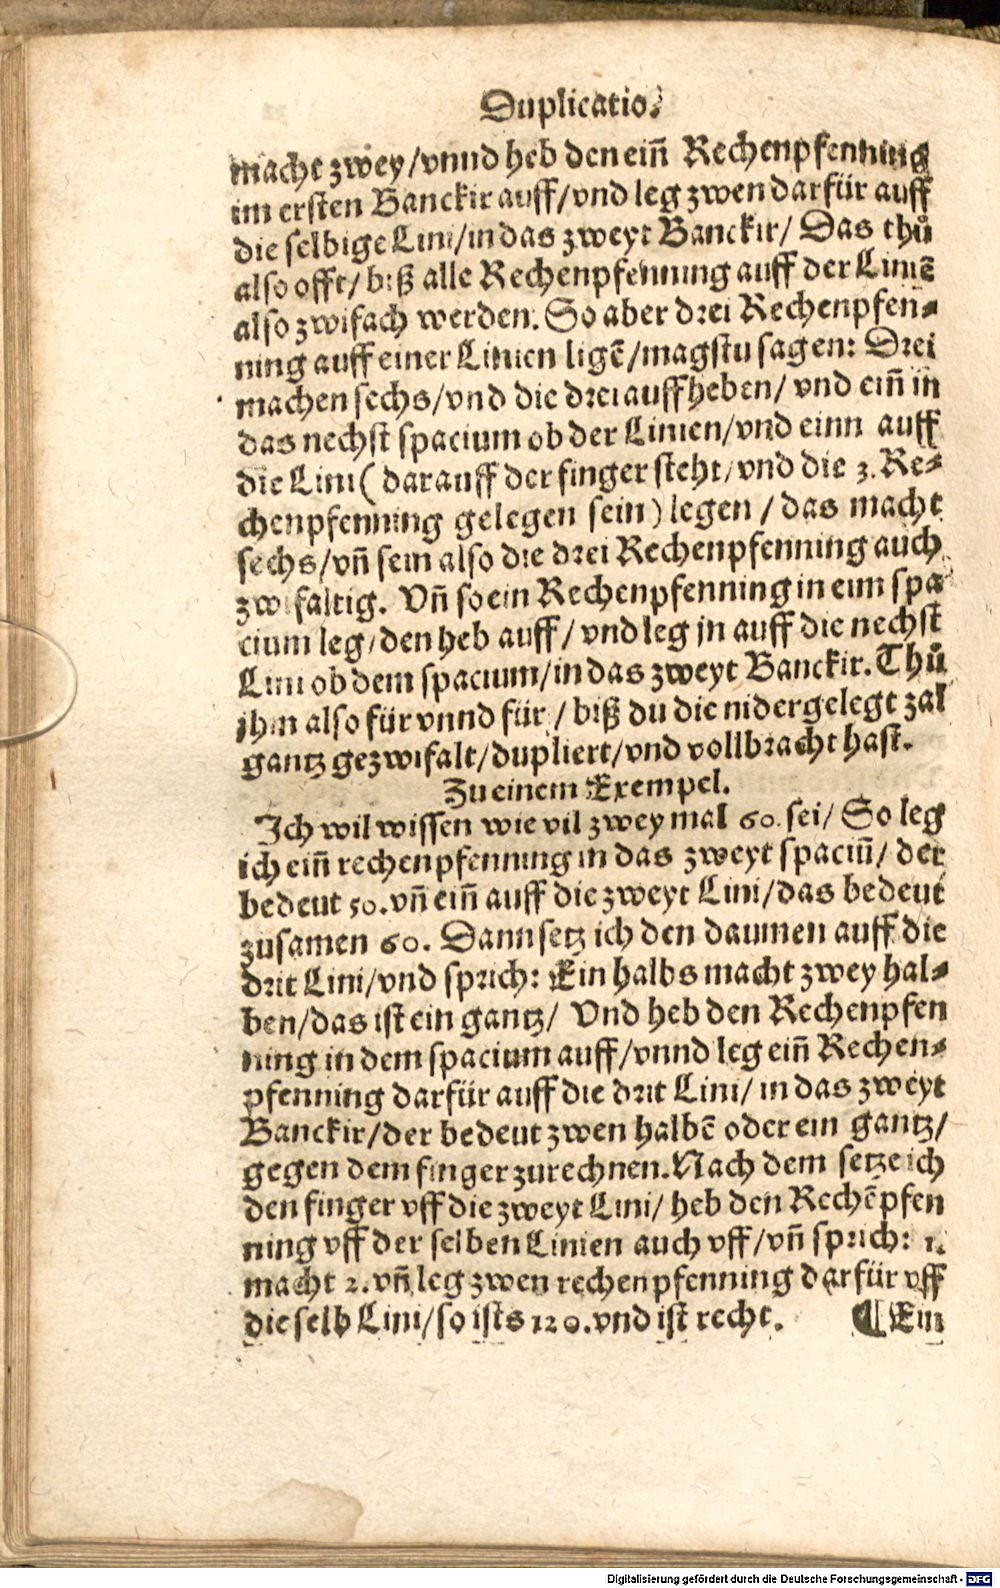 Duplicatio.
macht zwey/vnnd heb den eiñ Rechenpfenning
im ersten Banckir auff/vnd leg zwen darfür auff
die selbige Lini/in das zweyt Banckir/ Das thů
also offt/ biß alle Rechenpfenning auff der Liniẽ
also zwifach werden. So aber drei Rechenpfen⸗
ning auff einer Linien ligẽ/magstu sagen: Drei
machen sechs/vnd die drei auffheben/ vnd eiñ in
das nechst spacium ob der Linien/vnd einn auff
die Lini ( darauff der finger steht/vnd die 3. Re⸗
chenpfenning gelegen sein) legen / das macht
sechs/vñ sein also die drei Rechenpfenning auch
zwifaltig. Vñ so ein Rechenpfenning in eim spa
cium leg/den heb auff/ vnd leg jn auff die nechst
Lini ob dem spacium/in das zweyt Banckir. Thů
jhm also für vnnd für / biß du die nidergelegt zal
gantz gezwifalt/dupliert/vnd vollbracht hast.
Zu einem Exempel.
Ich wil wissen wie vil zwey mal 60. sei/ So leg
ich eiñ rechenpfenning in das zweyt spaciũ/ der
bedeut 50. vñ eiñ auff die zweyt Lini/das bedeut
zusamen 60. Dann setz ich den daumen auff die
drit Lini/vnd sprich: Ein halbs macht zwey hal⸗
ben/das ist ein gantz/ Vnd heb den Rechenpfen
ning in dem spacium auff/vnnd leg eiñ Rechen⸗
pfenning darfür auff die drit Lini/ in das zweyt
Banckir/der bedeut zwen halbẽ oder ein gantz/
gegen dem finger zurechnen. Nach dem setze ich
den finger vff die zweyt Lini/ heb den Rechẽpfen
ning vff der selben Linien auch vff/vñ sprich: 1.
macht 2. vñ leg zwen rechenpfenning darfür vff
die selb Lini/so ists 120. vnd ist recht. ¶ Ein
Digitalisierung gefördert durch die Deutsche Forschungsgemeinschaft - DFG